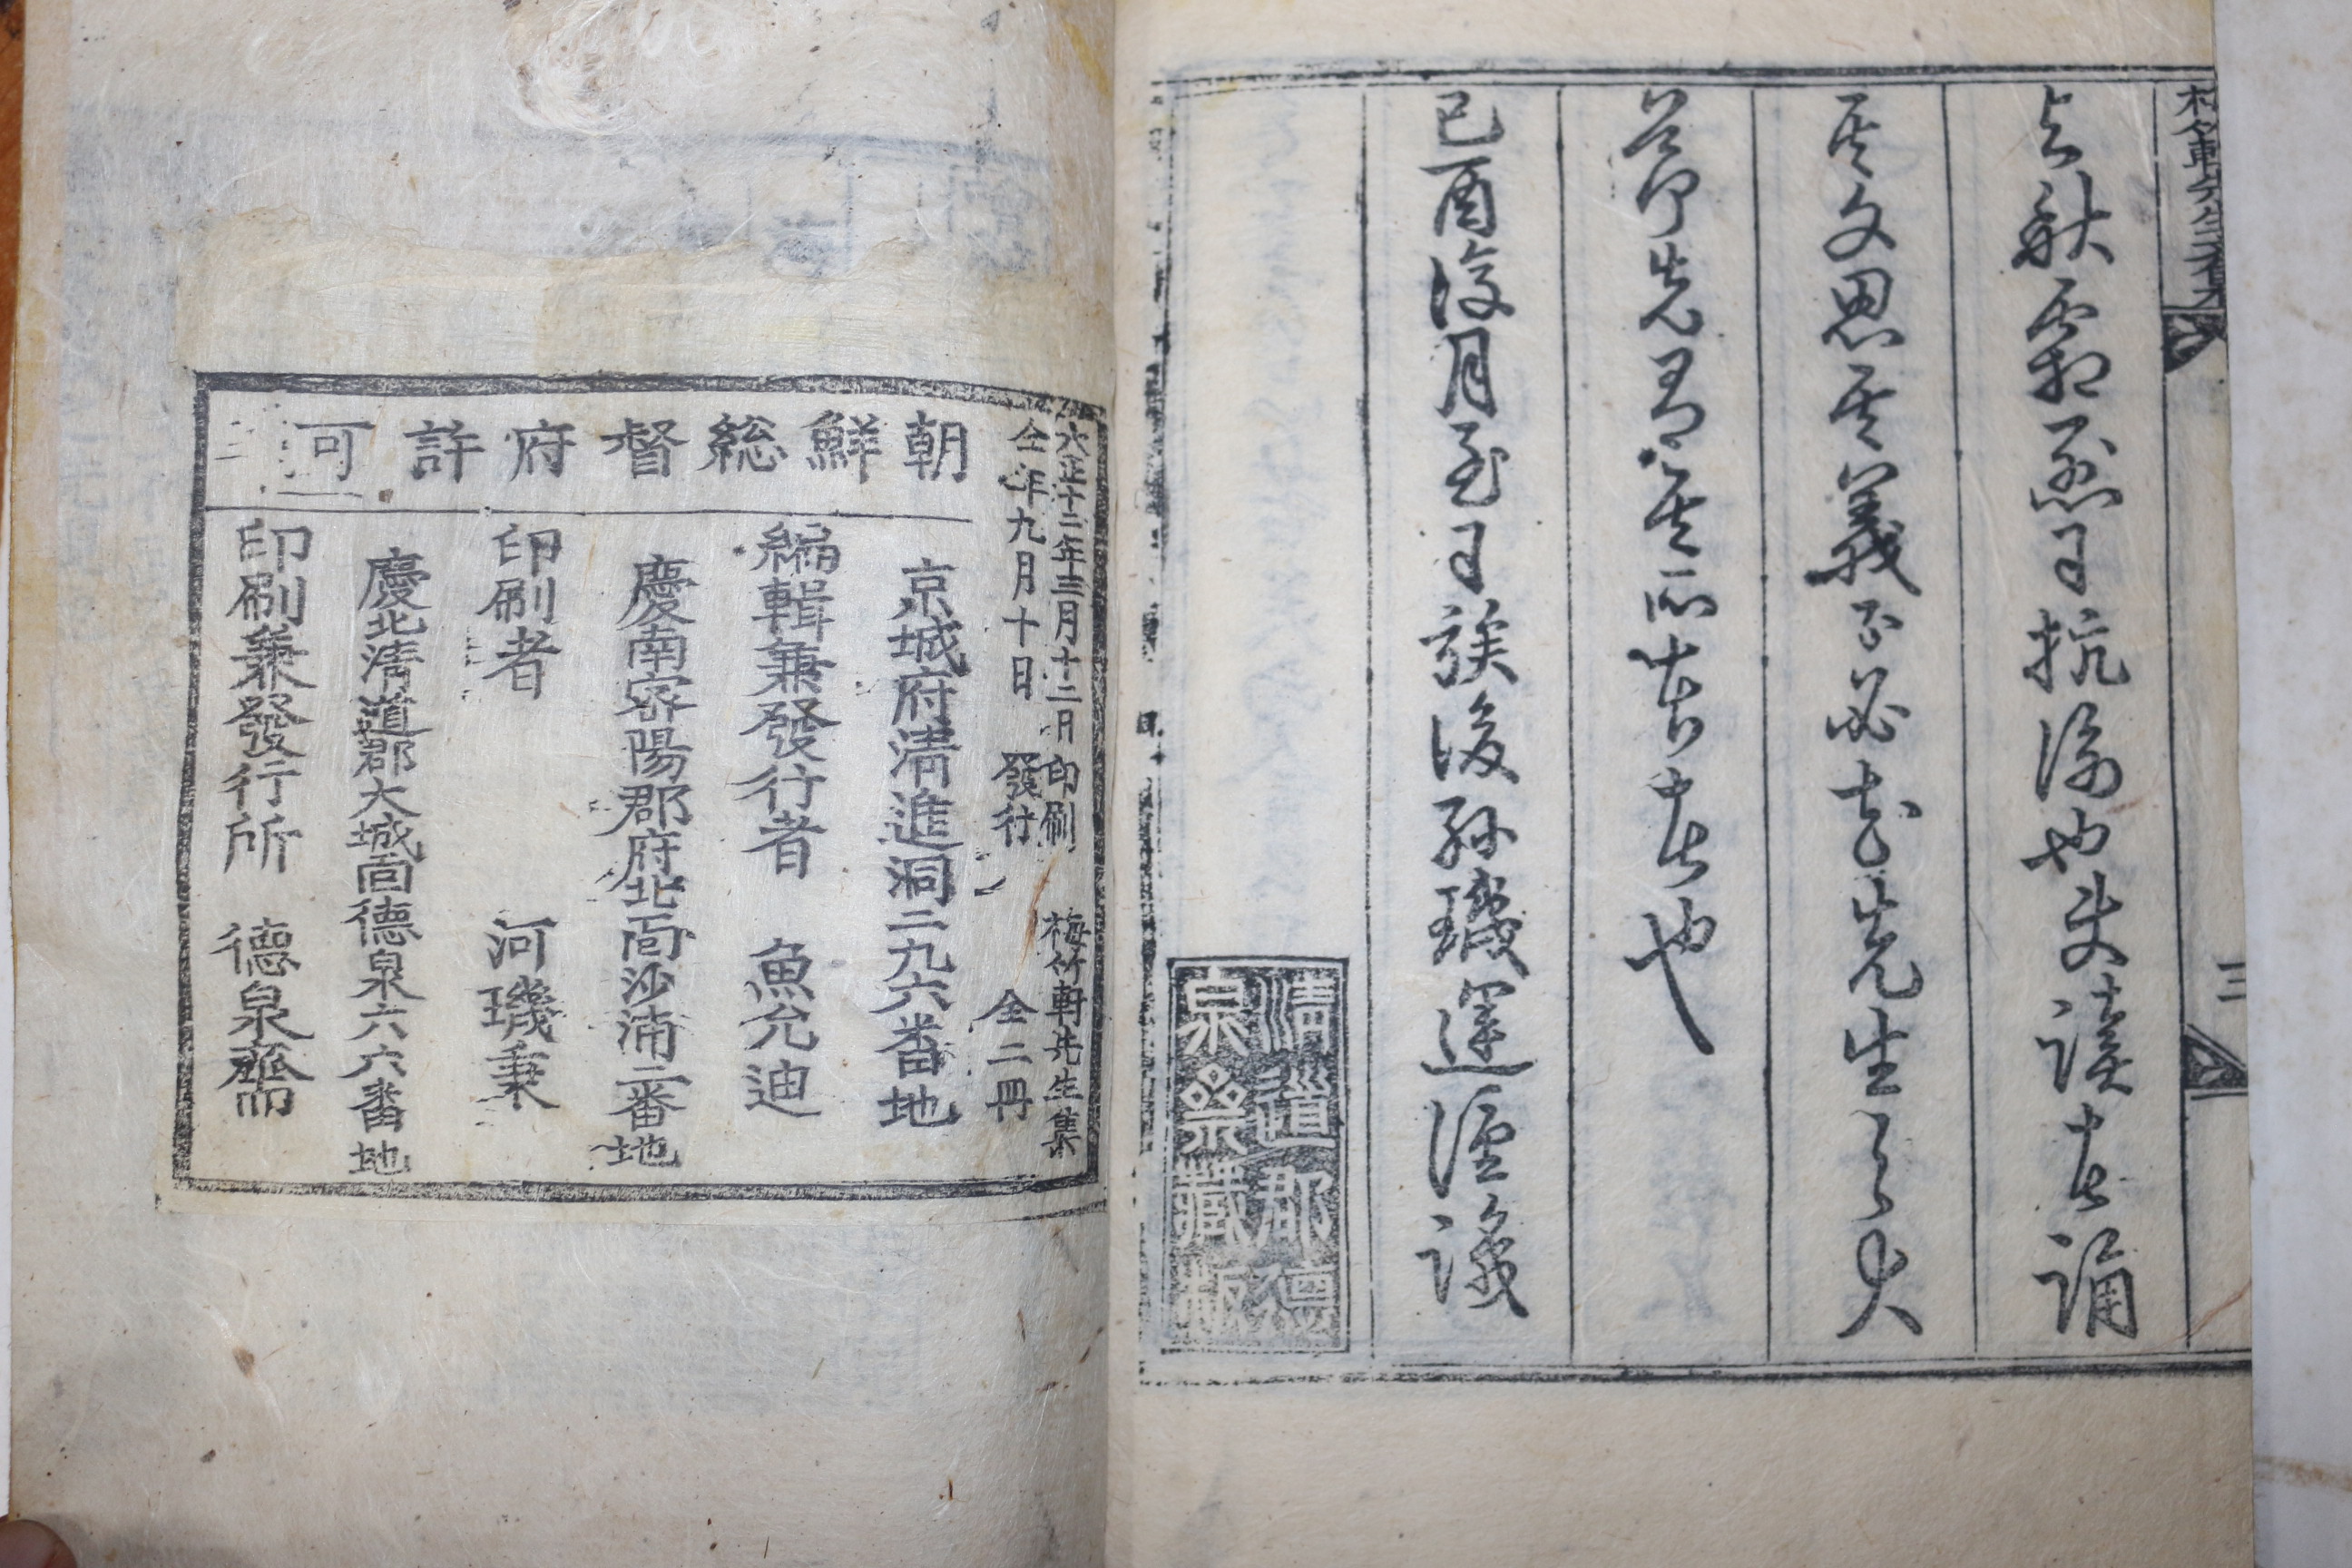 與秋霜烈日抗衡也夫讀其誦
其文思其義不必知先生之大
節即先君子所其者也
己酉復月五日族後孫璣運謹識
清道郡德
泉齋藏版
大正十二年三月十二日印刷 梅竹軒先生集
仝年九月十日 發行 全二冊
朝鮮総督府許可
京城府淸進洞二九六番地
編輯兼發行者 魚允迪
慶南密陽郡府北面沙浦二番地
印刷者 河璣秉
慶北淸道郡大城面德泉六六番地
印刷兼發行所 德泉齋